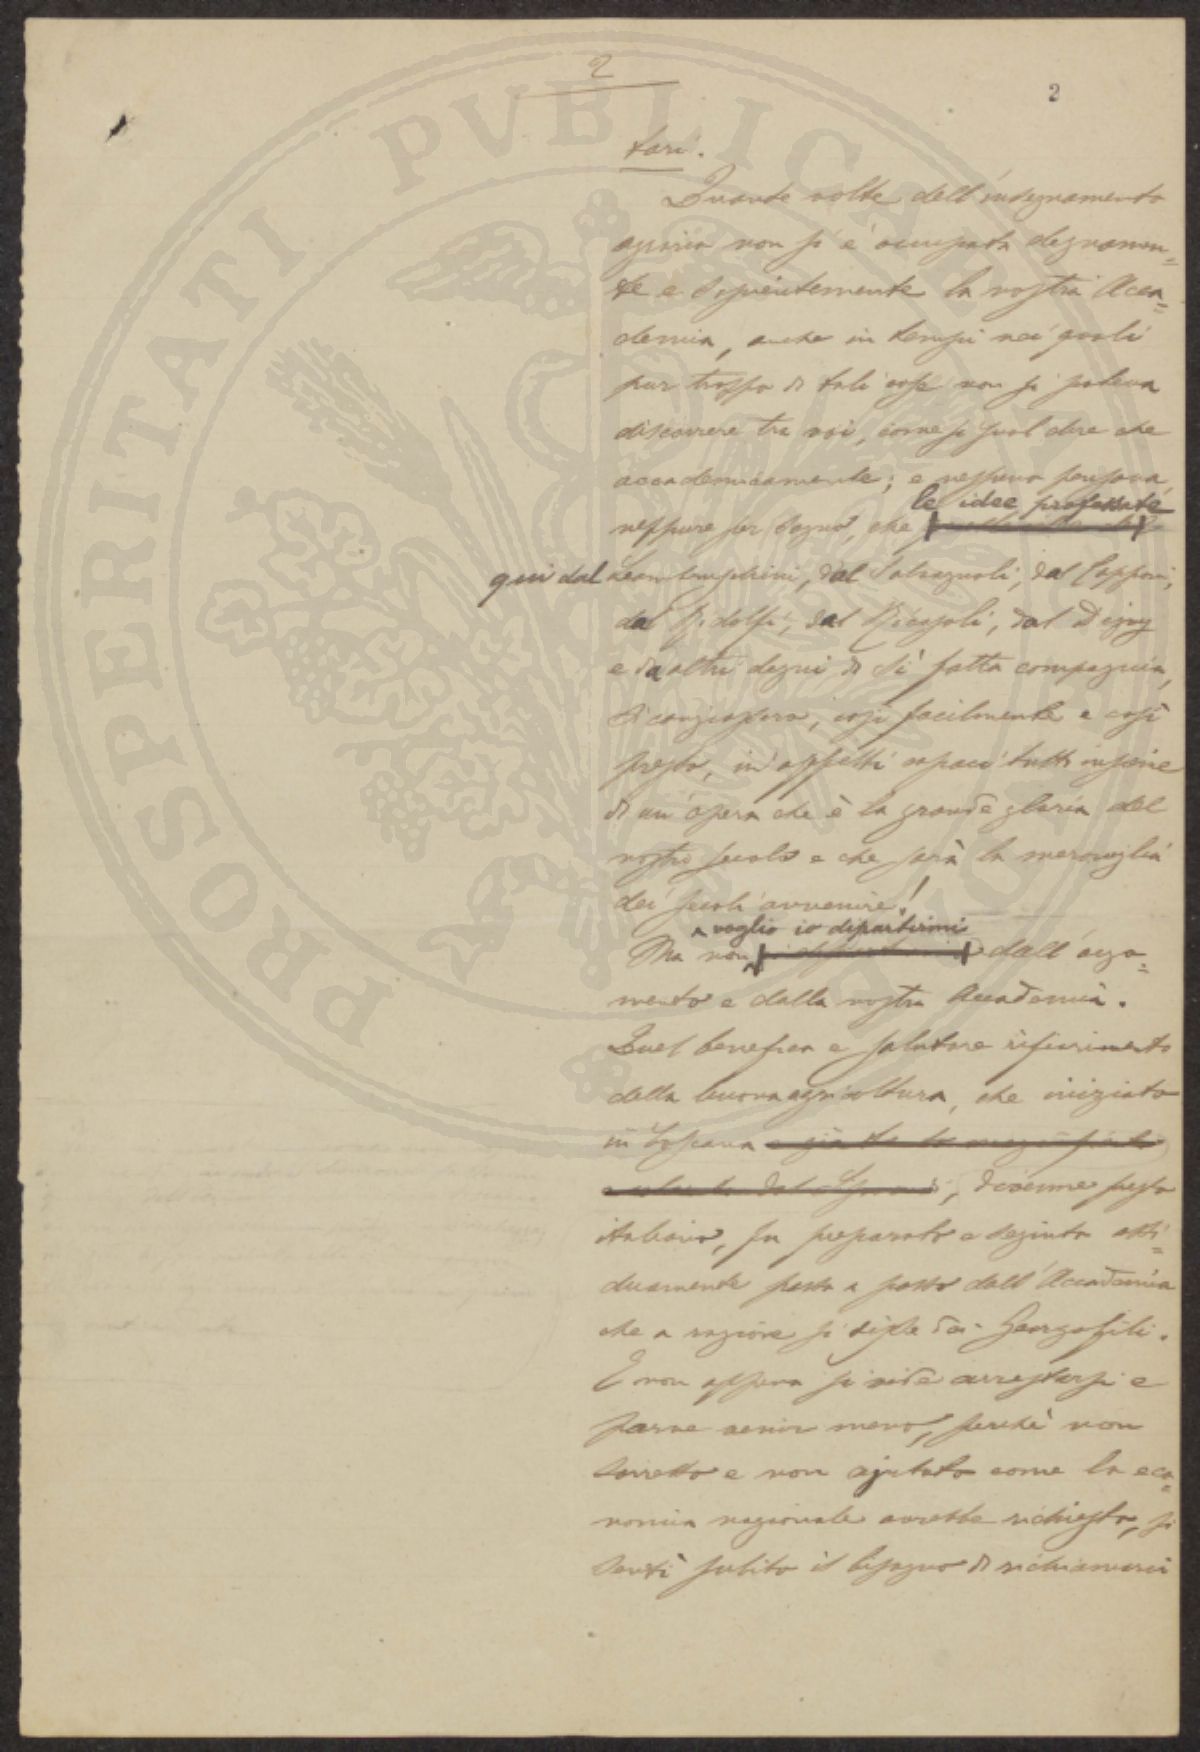 2
2
tari.
Quante volte dell'insegnamento
agrario non si è occupata degnamen=
te e sapientemente la nostra Acca=
demia, anche in tempi nei quali
pur troppo di tali cose non si poteva
discorrere tra noi, come si suol dire che
accademicamente; e nessuno pensava,
le idee professate
neppure per sogno, che
qui dal Lambruschini, dal Salvagnoli, dal Capponi,
dal Ridolfi, dal Ricasoli, dal Digny
e da altri degni di sì fatta compagnia,
si cangiassero, così facilmente e così
presto, in effetti capaci tutti insieme
di un'opera che è la grande gloria del
nostro secolo e che sarà la meraviglia
dei secoli avvenire!
voglio io dipartirmi
Ma non dall'argo=
mento e dalla nostra Accademia.
Quel benefico e salutare rifiorimento
della buona agricoltura, che iniziato
in Toscana
, divenne presto
italiano, fu preparato e seguito assi=
duamente passo a passo dall'Accademia
che a ragione si disse dei Georgofili.
E non appena si vide arrestarsi e
parve venir meno, perchè non
sorretto e non ajutato come la eco=
nomia nazionale avrebbe richiesto, si
sentì subito il bisogno di richiamarci
PROSPERITATI PVBLICAE